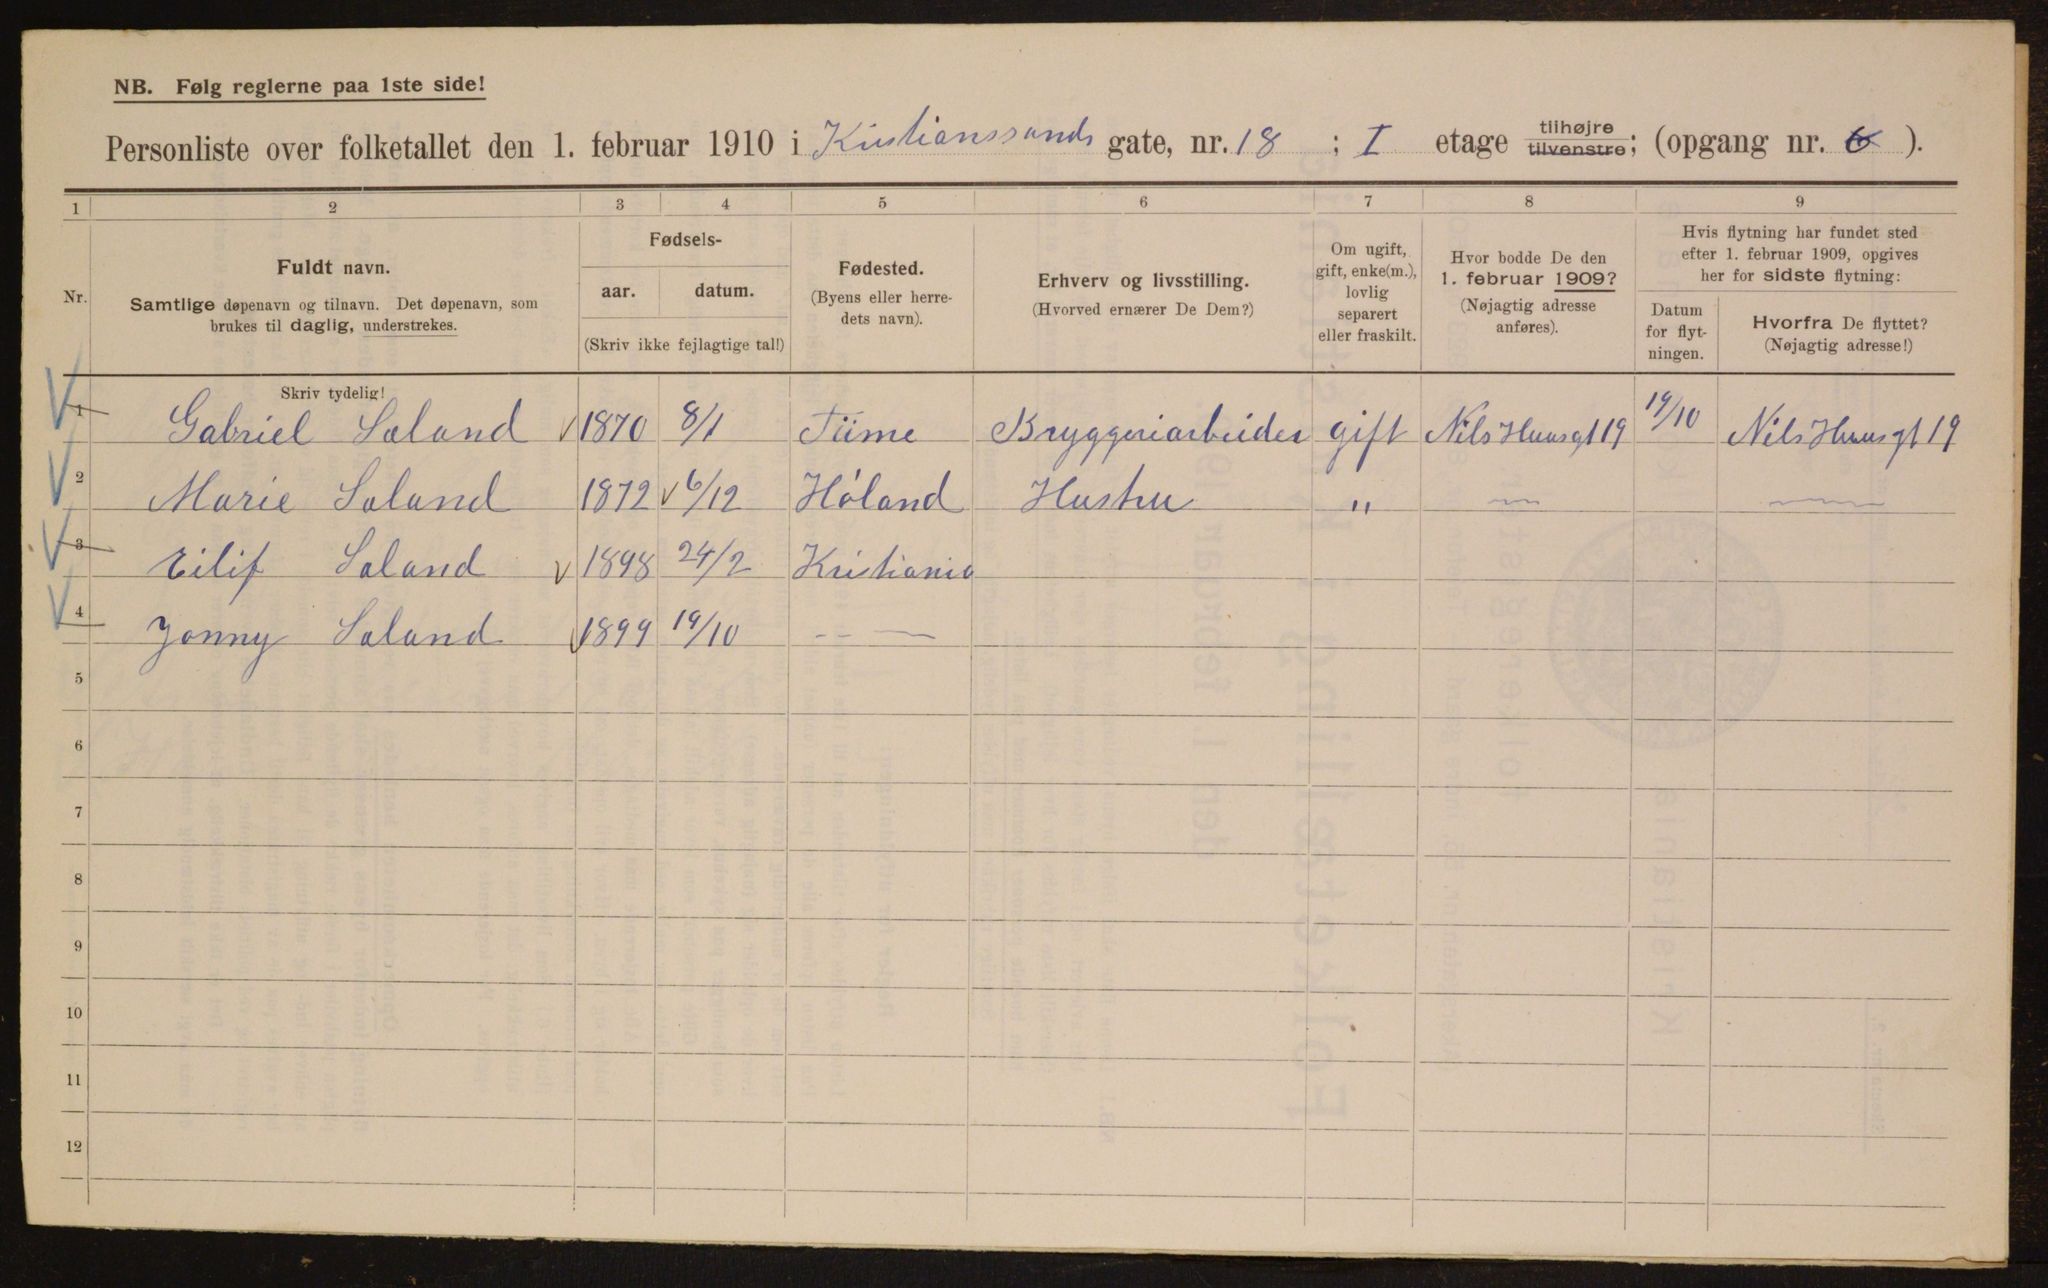 NB. Følg reglerne paa 1ste side!
Personliste over folketallet den 1. februar 1910 i Kristianssands gate, nr. 18 ; I etage tilhøjre tilvenstre; (opgang nr. ).
1 2 3 4 5 6 7 8 9
Nr.
Fuldt navn.
Samtlige døpenavn og tilnavn. Det døpenavn, som
brukes til daglig, understrekes.
Fødsels-
aar. datum.
(Skriv ikke fejlagtige tal!)
Fødested.
(Byens eller herre-
dets navn).
Erhverv og livsstilling.
(Hvorved ernærer De Dem?)
Om ugift,
gift, enke(m.),
lovlig
separert
eller fraskilt.
Hvor bodde De den
1. februar 1909?
(Nøjagtig adresse
anføres).
Hvis flytning har fundet sted
efter 1. februar 1909, opgives
her for sidste flytning:
Datum
for flyt-
ningen.
Hvorfra De flyttet?
(Nøjagtig adresse!)
Skriv tydelig!
1 Gabriel Saland 1870 8/1 Tiime Bryggeriarbeider gift Nils Huusgt 19 19/10 Nils Huusgt 19
2 Marie Saland 1872 6/12 Høland Hustru " — —
3 Eilif Saland 1898 24/2 Kristiania
4 Jonny Saland 1899 19/10 -- —
5
6
7
8
9
10
11
12